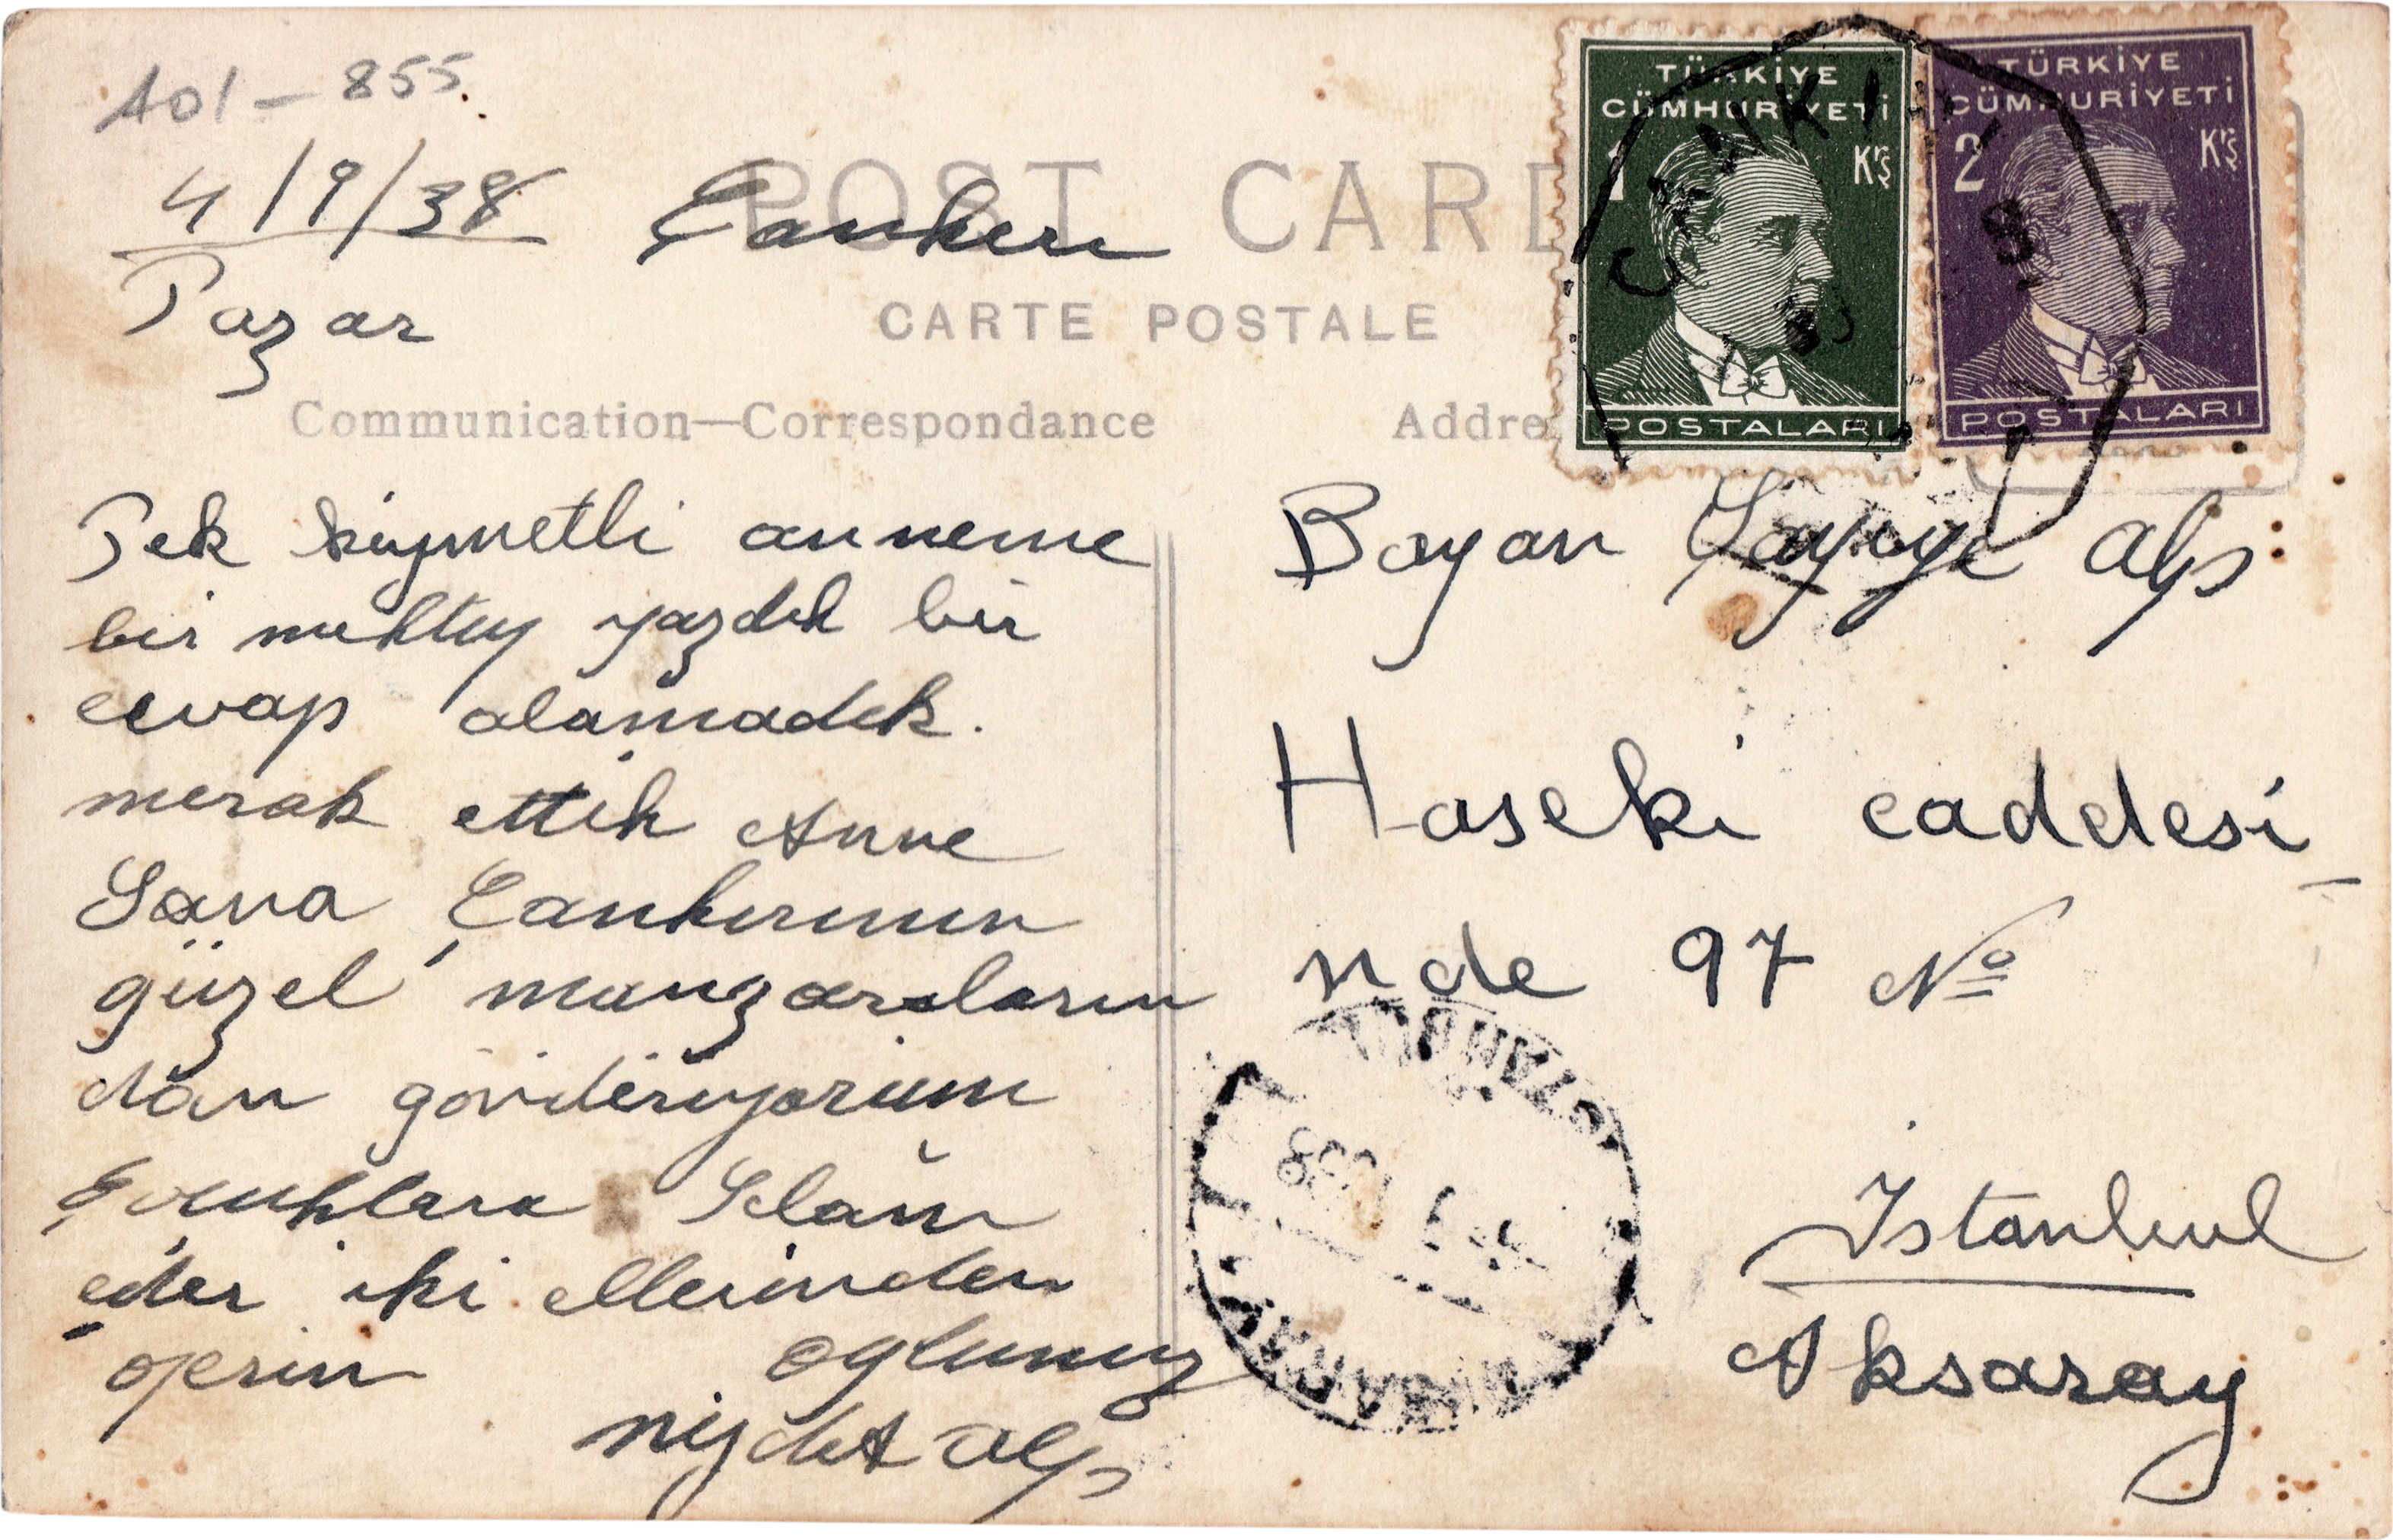 A01-855
4/9/38 Çankırı
Pazar
POST CARD
CARTE POSTALE
Communication—Correspondance
Addre
TÜRKİYE
CÜMHURİYETİ
1 Krş
POSTALARI
TÜRKİYE
CÜMHURİYETİ
2 Krş
POSTALARI
ÇANKIRI
Pek kıymetli anneme
bir mektup yazdık bir
cevap alamadık.
merak ettik Anne
Sana Çankırının
güzel manzaraların
dan gönderiyorum
Çocuklara Selam
eder iki ellerinden
öperim oğlunuz
nijdet Alp
Bayan alp
Haseki caddesi
nde 97 No
İstanbul
Aksaray
ISTANBUL